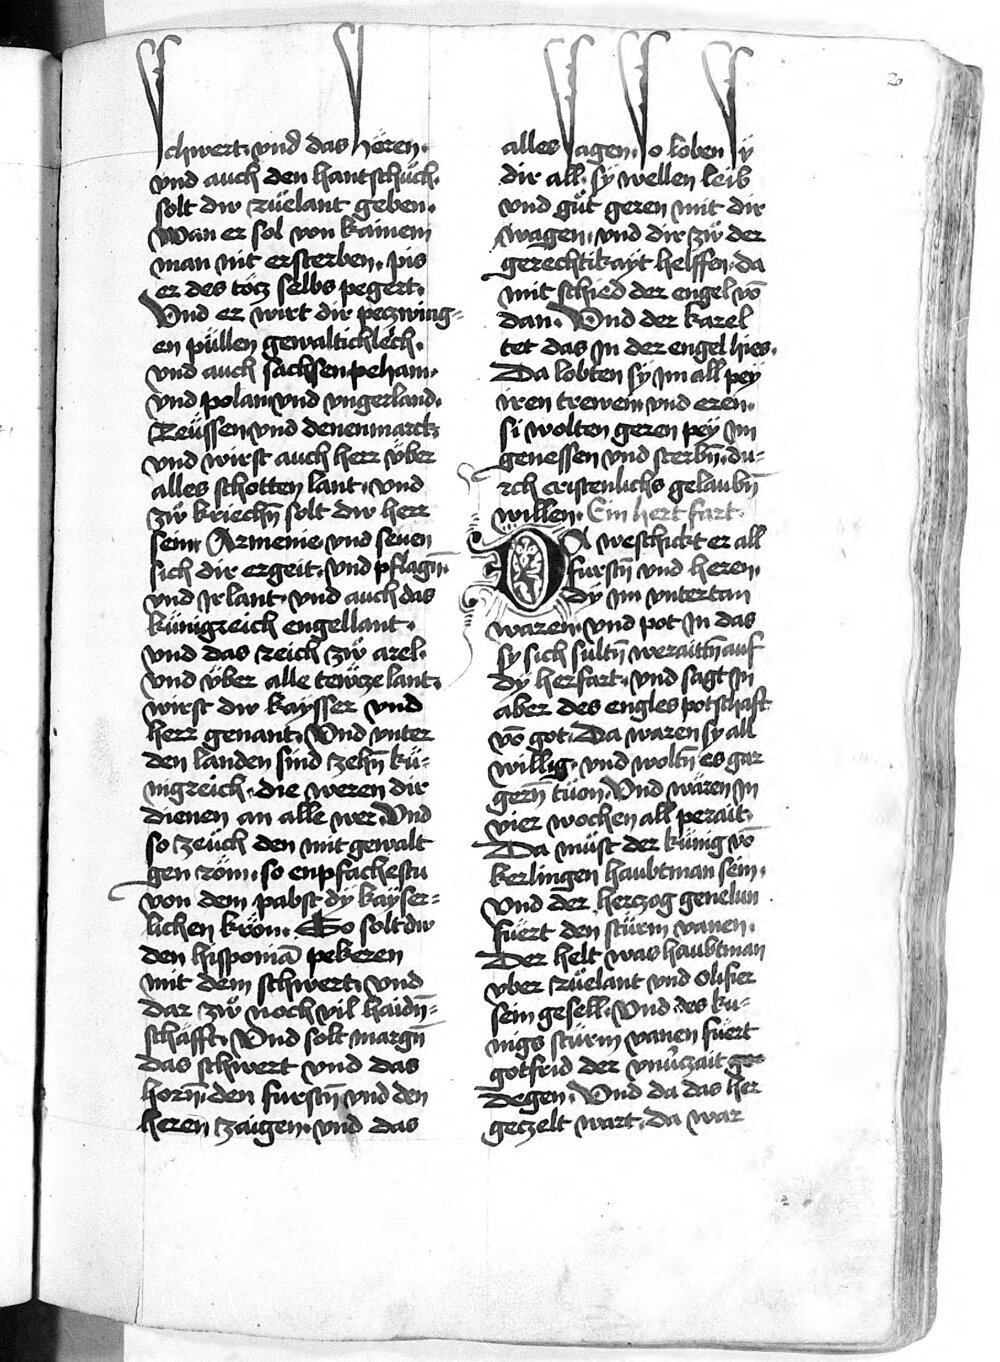 Schwert. vnd das hören.
vnd auch den hantschüch.
solt dw rüelant geben.
Wan er sol von kainem
man nit ersterben. pis
er des tötz selbs pegert.
Vnd er wirt dir peczwing=
en püllen gewaltichlech.
vnd auch sachsen. peham.
vnd polan. vnd vngerland.
Reüssen. vnd denenmarck
vnd wirst auch herr vͤber
alles schotten lant. vnd
zẅ kriechn̄ solt dw herr
sein. Armenie. vnd seuen
sich dir ergeit. vnd pflagn̄.
vnd Jrlant. vnd auch das
künigreich engellant.
vnd das reich zẅ arel.
vnd vͤber alle tewtze lant.
wirst dw kaysser vnd
herr genant. Vnd vnter
den landen sind zehn̄ kü=
nigreich. die weren dir
dienen an alle wer. Vnd
so zeüch den mit gewalt
gen röm. so enpfachestu
von dem pabst dÿ kaÿser=
lichen kron. So solt dw
den hisponiā pekeren
mit dem schwert. vnd
dar zẅ noch vil haidn̄=
schäfft. Vnd solt margn̄
das schwert vnd das
horn̄. den furstn̄ vnd den
heren zaigen. vnd das
alles sagen. So loben sÿ
dir all. sÿ wellen leib
vnd güt geren mit dir
wagen. vnd dir zẅ der
gerechtikayt helffen. da
mit schied der engel vō
dan. Vnd der karel
tet das Jn der engel hies.
Da lobten sÿ Jm all peÿ
iren trewen vnd eren.
si wolten geren peÿ Jm
genessen vnd sterbn̄. du=
rch cristenlichs gelaubn̄
willen. Ein hert fart.
DA weschickt er all
furstn̄ vnd heren.
dÿ Jm vntertan
waren. vnd pot Jn das
sÿ sich sultn̄ weraittn̄ auf
dÿ herfart. vnd sagt Jn
aber des engles potschaft
vō got. Da waren sÿ all
willig. vnd woltn̄ es gar
gern̄ tüon. Vnd wären Jn
vier wochen all perait.
Da müst der künig vō
kerlingen haubtman sein.
vnd der herczog genelun
füert den stürm vanen.
Der helt was haubtman
vber rüelant vnd olifier
sein gesell. Vnd des ku=
nigs stürm vanen füert
gotfrid der vnüczait
Degen. Vnd da das her
geczelt wart. da war